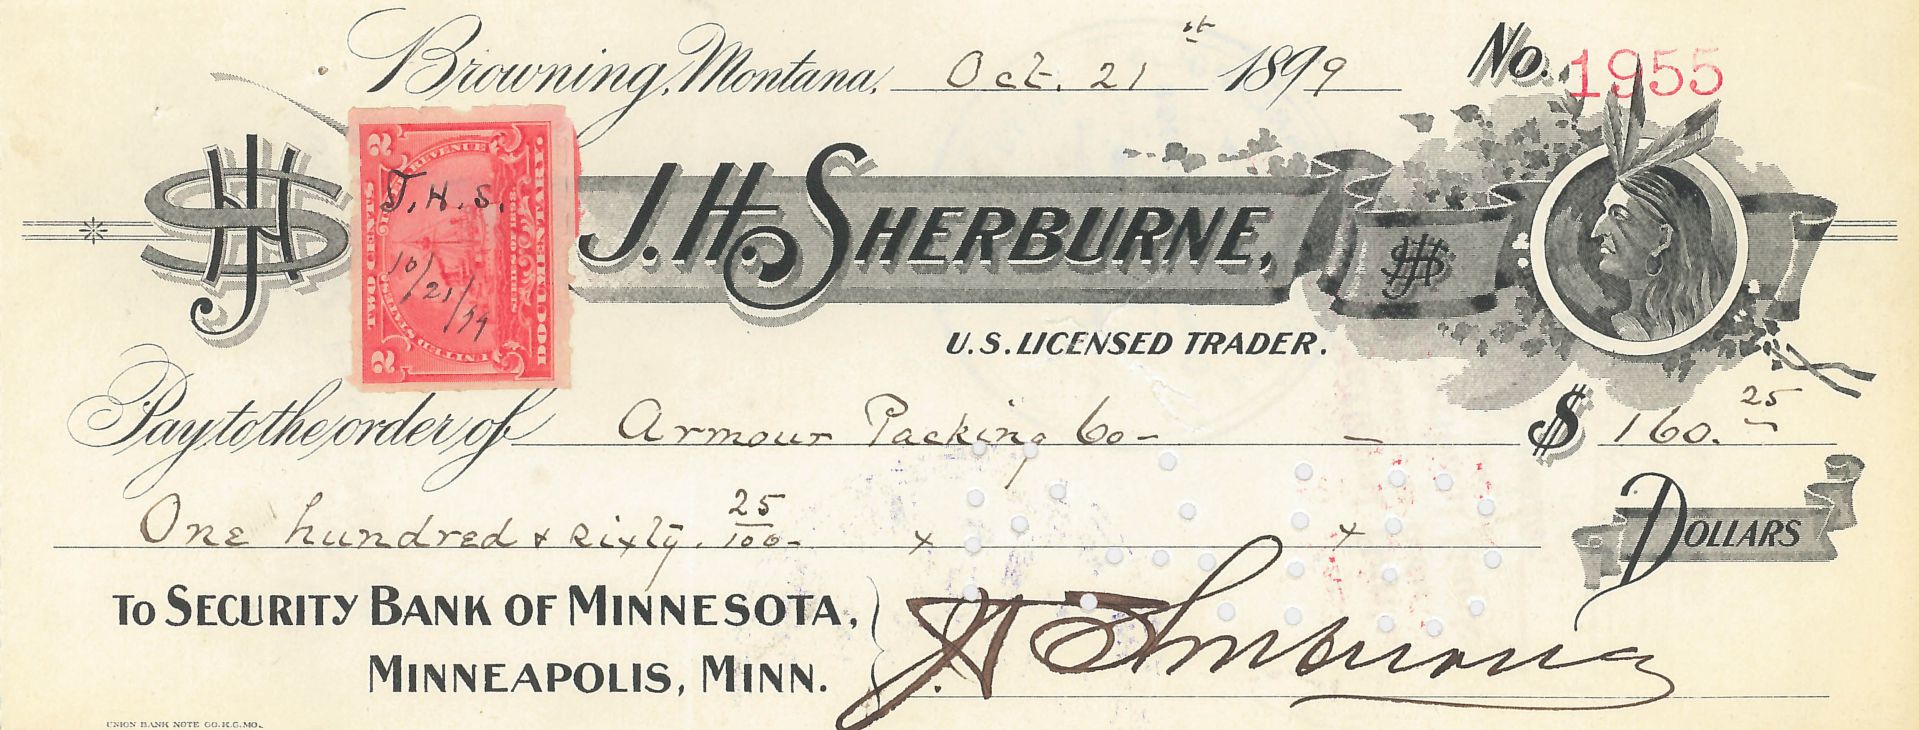 Browning, Montana, Oct. 21 st 1899 No. 1955
JHS
2 2
UNITED STATES INTERNAL REVENUE
TWO CENTS
SERIES OF 1898
DOCUMENTARY.
J.H.S.
10/21/99
J.H. SHERBURNE,
JHS
U.S. LICENSED TRADER.
Pay to the order of Armour Packing Co - - $ 160. 25
One hundred & sixty. 25/100 - x x DOLLARS
TO SECURITY BANK OF MINNESOTA,
MINNEAPOLIS, MINN.
J H Sherburne
UNION BANK NOTE CO. K.C. MO.